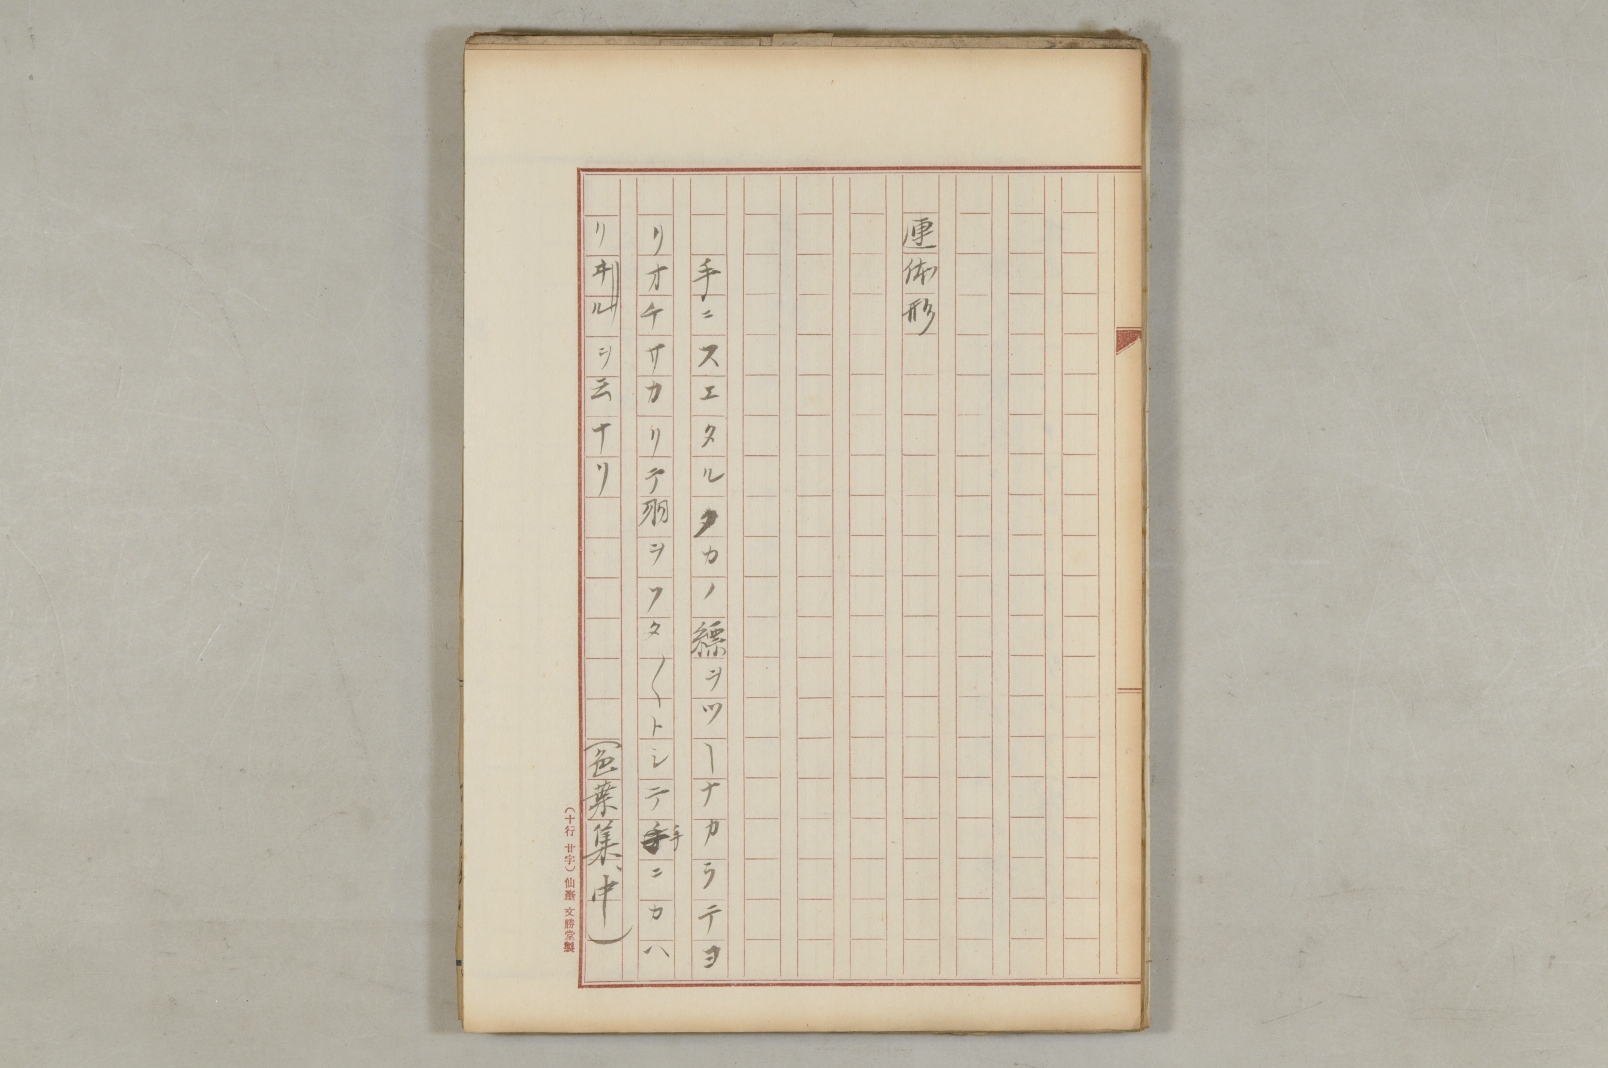 連体形
手ニスエタルタカノ縹ヲツーナカラテヨ
リオチサカリテ羽ヲフタ〱トシテ手ニカハ
手
リヰルヲ云ナリ　（色葉集、中）
（十行廿字）仙臺 文勝堂製